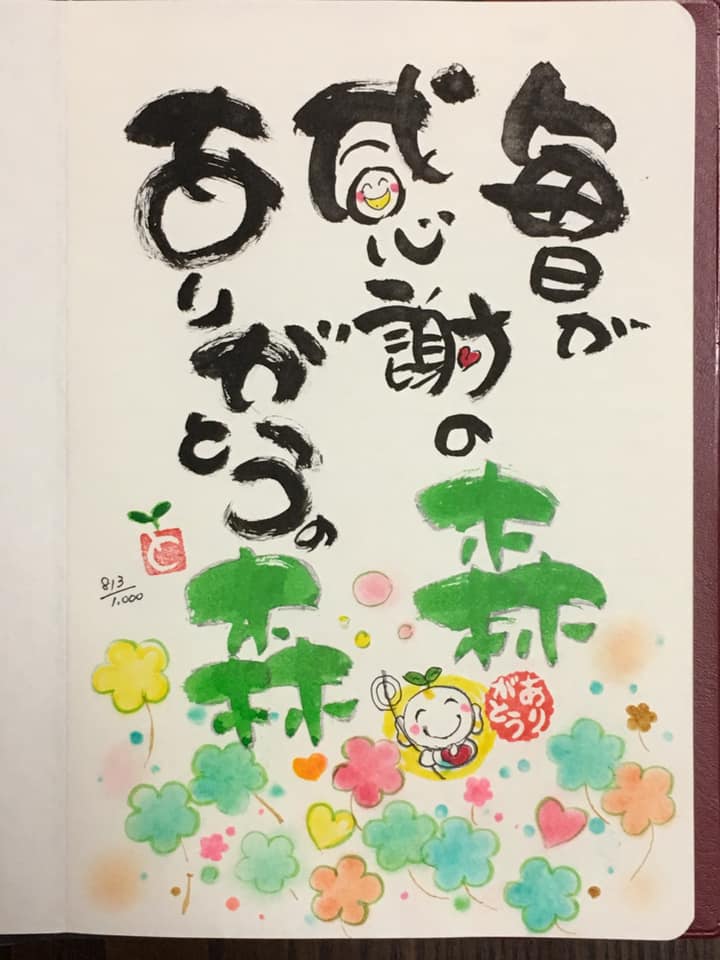 毎日が
感謝の
森
ありがとうの
森
ありがとう
と
813/1,000